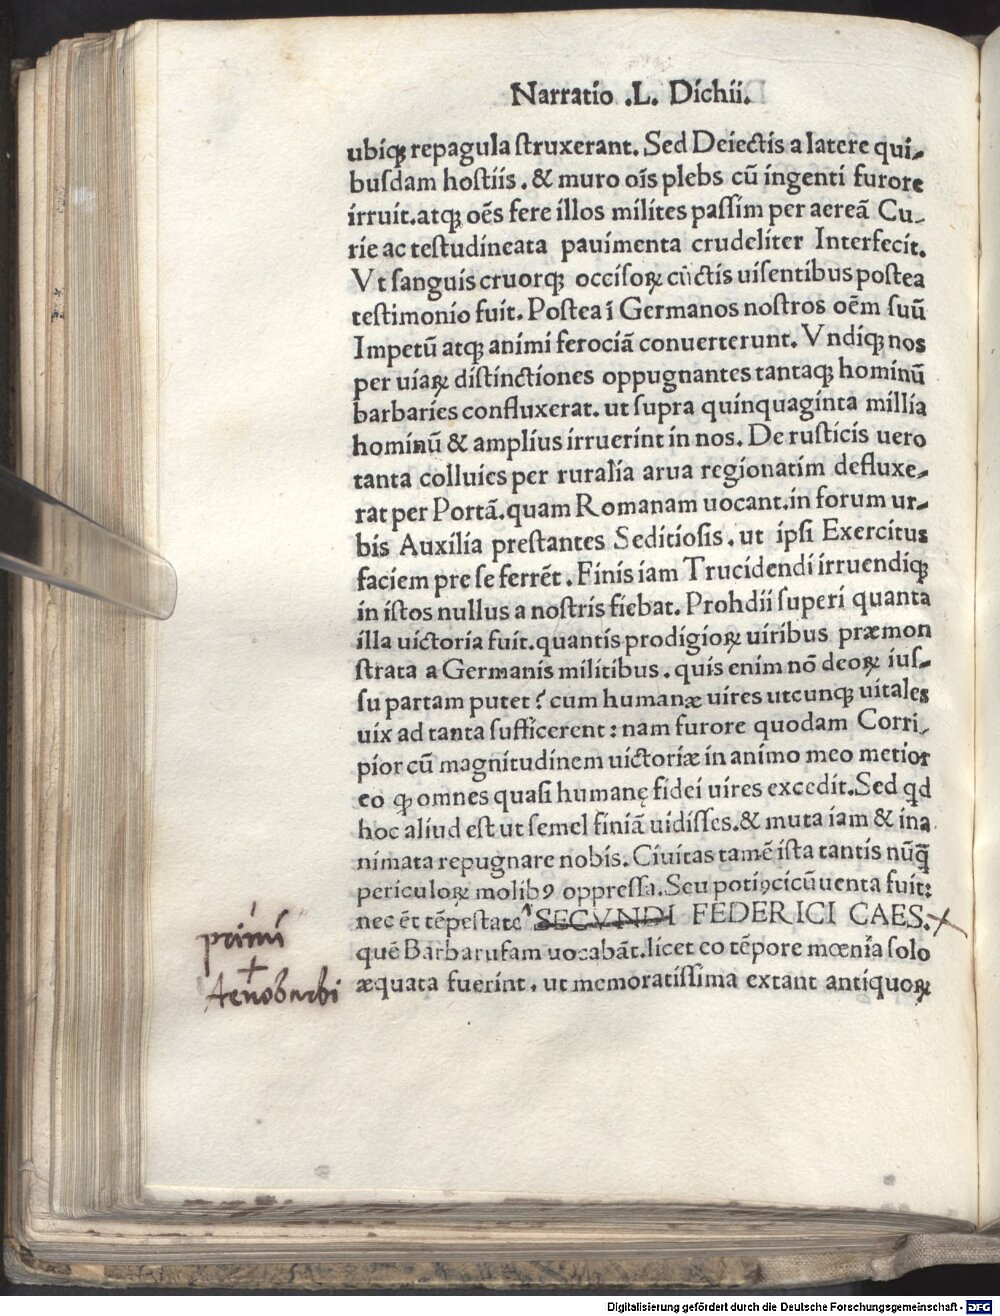 Narratio .L. Dichii.
ubiqꝫ repagula ſtruxerant. Sed Deiectis a latere qui-
buſdam hoſtiis . & muro oı̄s plebs cū ingenti furore
irruit.atqꝫ oēs fere illos milites paſſim per aereā Cu-
rie ac teſtudineata pauimenta crudeliter Interfecit.
Vt ſanguis cruorqꝫ occiſoꝝ cūctis uiſentibus poſtea
teſtimonio fuit. Poſtea ī Germanos noſtros oēm ſuū
Impetū atqꝫ animi ferociā conuerterunt. Vndiqꝫ nos
per uiaꝝ diſtinctiones oppugnantes tantaqꝫ hominū
barbaries confluxerat. ut ſupra quinquaginta millia
hominū & amplius irruerint in nos. De ruſticis uero
tanta colluies per ruralia arua regionatim defluxe-
rat per Portā. quam Romanam uocant.in forum ur-
bis Auxilia preſtantes Seditioſis . ut ipſi Exercitus
faciem pre ſe ferrēt . Finis iam Trucidendi irruendiqꝫ
in iſtos nullus a noſtris fiebat. Prohdii ſuperi quanta
illa uictoria fuit.quantis prodigioꝝ uiribus præmon
ſtrata a Germanis militibus . quis enim nō deoꝝ iuſ-
ſu partam putet ? cum humanæ uires utcunqꝫ uitales
uix ad tanta ſufficerent : nam furore quodam Corri-
pior cū magnitudinem uictoriæ in animo meo metior
eo ꝙ omnes quaſi humanę fidei uires excedit. Sed qd
hoc aliud eſt ut ſemel finiā uidiſſes.& muta iam & ina
nimata repugnare nobis. Ciuitas tamē iſta tantis nūq̄
periculoꝝ molibꝯ oppreſſa. Seu potiꝯcicūuenta fuit:
nec ēt tēpeſtate SECVNDI FEDERICI CAES.
primi
+
Aenobarbi
quē Barbarufam uocabāt.licet eo tēpore mœnia ſolo
æquata fuerint . ut memoratiſſima extant antiquoꝝ
Digitalisierung gefördert durch die Deutsche Forschungsgemeinschaft - DFG